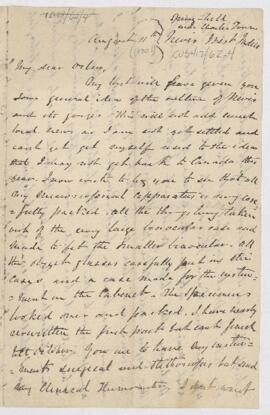 Spring-field
near Charles Town
August 11th Nevis West Indies
CUS417/62.4
My dear Osler,
My last will have given you
some general idea of the nature of Nevis
and its people. This will not add much
local news as I am not yet settled and
cant yet get myself used to the idea
that I may not get back to Canada this
year. I now write to beg you to see that all
my microscopical apparatus is very care-
-fully packed. All the things being taken
out of the very large binocular case and
made to fit the smaller binocular. All
the object glasses carefully put in the
cases, and a case made for the system-
-ment on the Cabinet. The specimens
looked over and packed. I have nearly
rewritten the first part but cant finish
till October. You are to have my instru-
-ments surgical and Stethoscopes but send
my Clinical Thermometer. I dont want